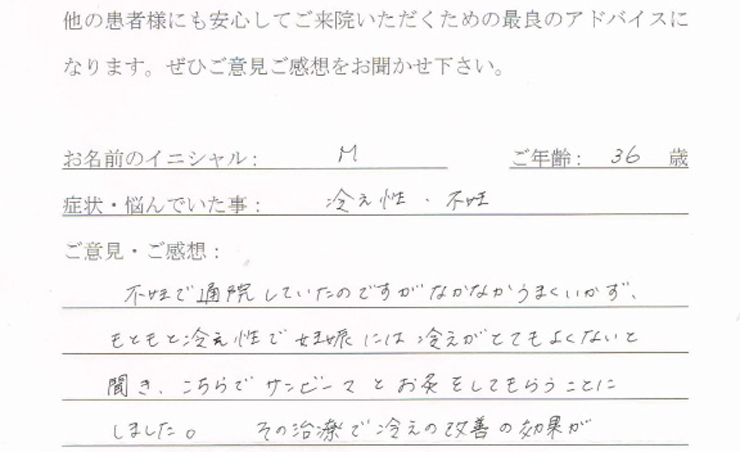 他の患者様にも安心してご来院いただくための最良のアドバイスに
なります。ぜひご意見ご感想をお聞かせ下さい。
お名前のイニシャル: M ご年齢: 36 歳
症状・悩んでいた事: 冷え性・不妊
ご意見・ご感想:
不妊で通院していたのですがなかなかうまくいかず、
もともと冷え性で妊娠には冷えがとてもよくないと
聞き、こちらでサンビーマとお灸をしてもらうことに
しました。 その治療で冷えの改善の効果が